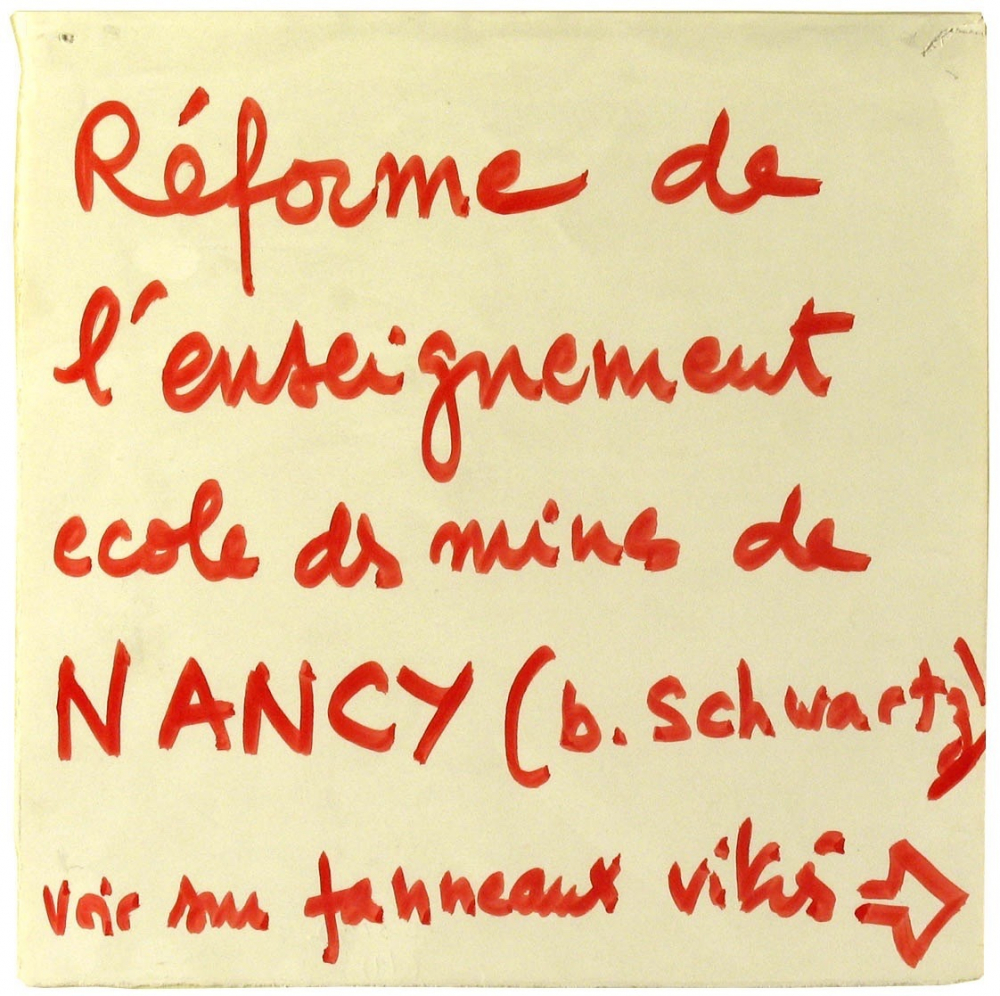 Réforme de
l'enseignement
ecole des mines de
NANCY (b. Schwartz)
voir sur panneaux vitrés